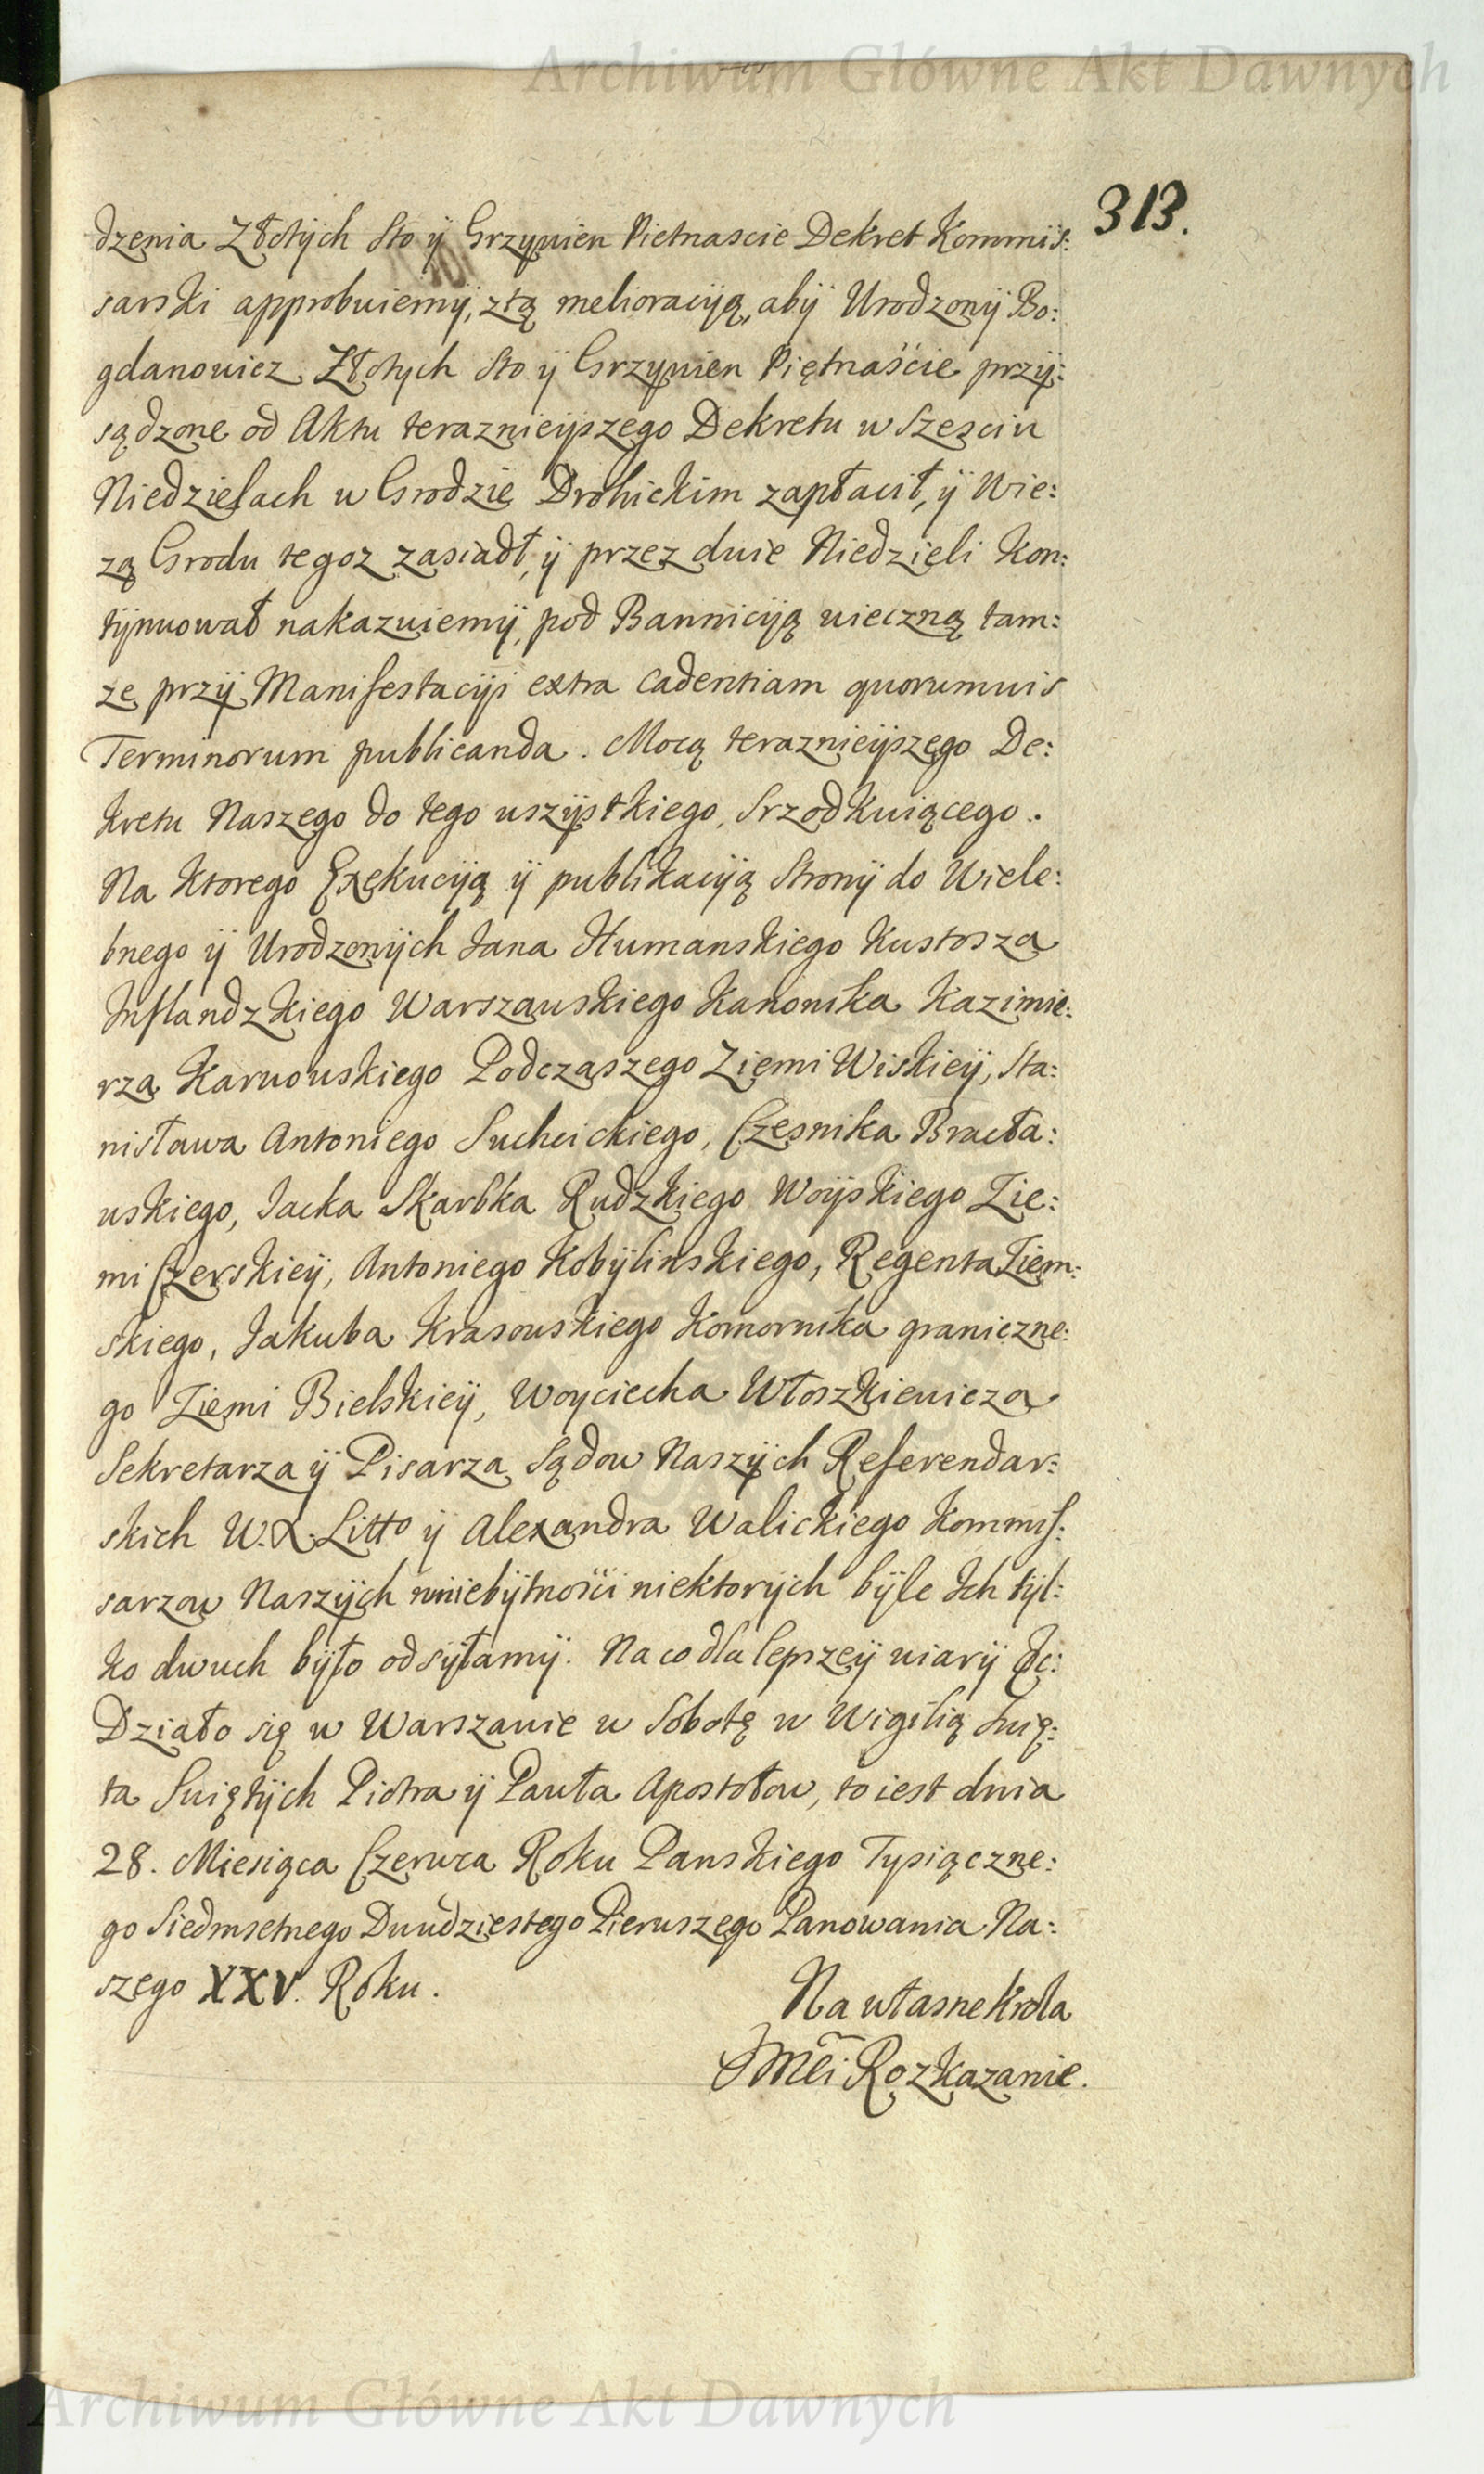 Archiwum Główne Akt Dawnych
313.
dzenia Złotÿch Sto ÿ Grzywien Pietnascie Dekret Kommis:
sarski approbuiemÿ, ztą melioracÿą, abÿ Urodzonÿ Bo:
gdanowicz Złotych Sto ÿ Grzywien Piętnaście przÿ:
sądzone od Aktu teraznieÿszego Dekretu w Szesciu
Niedzielach w Grodzie Drohickim zapłacił, ÿ Wie:
zą Grodu tegoz zasiadł, ÿ przez dwie Niedzieli Kon:
tÿnuował nakazuiemÿ, pod Bannicÿą wieczną tam:
ze przÿ Manifestacÿi extra cadentiam quorumvis
Terminorum publicanda. Mocą teraznieÿszego De:
kretu Naszego do tego wszÿstkiego, Srzodkuiącego.
Na ktorego Exekucÿą ÿ publikacÿą Stronÿ do Wiele:
bnego ÿ Urodzonÿch Jana Humanskiego Kustosza
Inflandzkiego Warszawskiego Kanonika Kazimie:
rza Karwowskiego Podczaszego Ziemi Wiskieÿ, Sta:
nisława Antoniego Suchcickiego, Czesnika Bracła:
wskiego, Jacka Skarbka Rudzkiego Woÿskiego Zie:
mi Czerskieÿ, Antoniego Kobÿlinskiego, Regenta Ziem:
skiego, Jakuba Krasowskiego Komornika graniczne:
go Ziemi Bielskieÿ, Woyciecha Włoszkiewicza
Sekretarza ÿ Pisarza Sądow Naszÿch Referendar:
skich W.X. Litto ÿ Alexandra Walickiego Kommis:
sarzow Naszÿch w niebÿtności niektorÿch bÿle Ich tÿl:
ko dwuch bÿło odsÿłamÿ. Na co dla lepszeÿ wiarÿ &c:
Działo się w Warszawie w Sobotę w Wigilią Swię:
ta Swiętÿch Piotra ÿ Pawła Apostołow, to iest dnia
28. Miesiąca Czerwca Roku Panskiego Tysiączne:
go Siedmsetnego Dwudziestego Pierwszego Panowania Na:
szego XXV. Roku.
Na własne Krola
JMci Rozkazanie.
Archiwum Główne Akt Dawnych